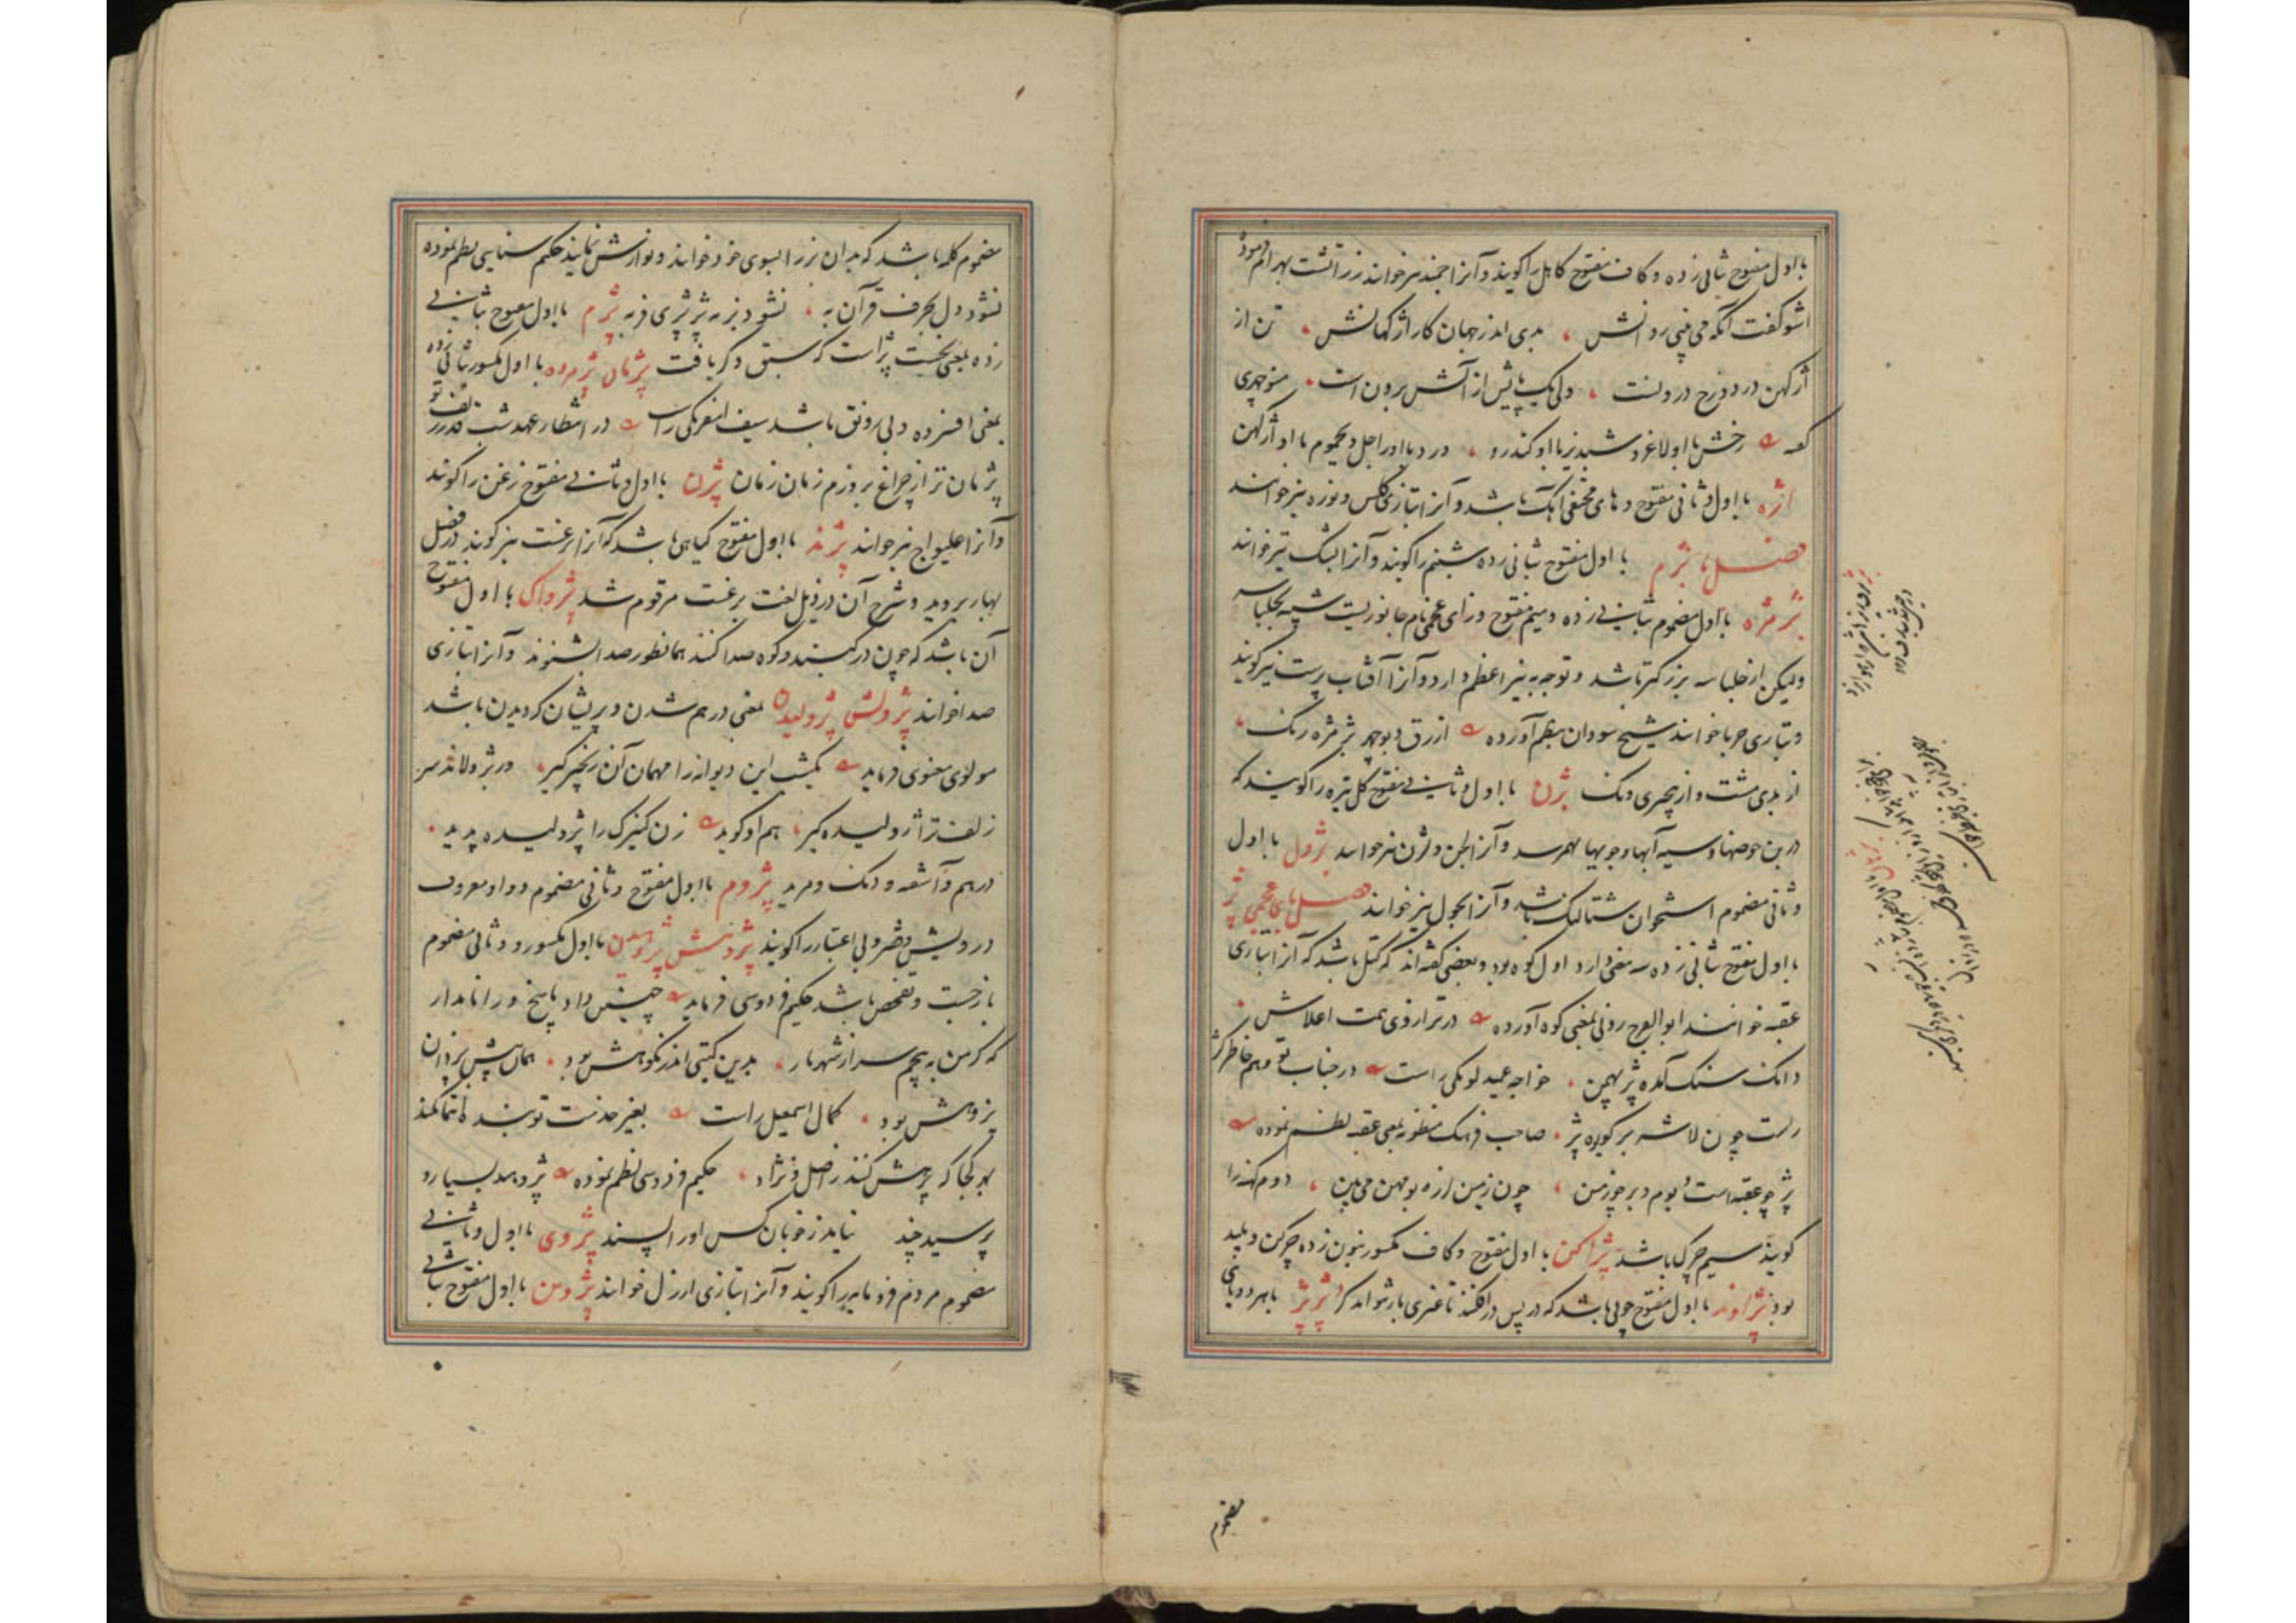 با اول مفتوح بثانی زده و کاف مفتوح کاهل را کویند و آنرا اجمند نیز خوانند زرراتشت بهرام فرمود
اشو کفت آنکه می بینی روانش ، بدی اندر جهان کار اژکهانش ، تن از
اژکهن در دوزخ درونست ، ولی یک پایش از آتش برون است ، منوچهری
کفته رخش با او لاغر و شبدیز با او کندرو ، ورد با او راجل و یحموم با او اژکهن
اژه با اول و ثانی مفتوح و های مختفی آهک باشد و آنرا بتازی کلس و نوره نیز خوانند
فصل با بژم با اول مفتوح بثانی زده شبنم را کویند و آنرا بشک نیز خوانند
بژمژه با اول مضموم بثانی زده و میم مفتوح و زای عجمی نام جانوریست شبیه بچلپاسه
ولیکن از چلپاسه بزرکتر باشد و توجه به نیر اعظم دارد و آنرا آفتاب پرست نیز کویند
و بتازی حربا خوانند شیخ سودان بنظم آورده ازرق و بوجهر بژمژه رنک ،
از بدی مشت و از بخیری دنک بژن با اول و ثانی مفتوح کل تیره را کویند که
در بن حوضها و سیه آبها و جویها بهم رسد و آنرا لجن و لژن نیز خوانند بژول با اول
و ثانی مضموم استخوان شتالنک باشد و آنرا بجول نیز خوانند فصل بای عجمی پژ
با اول مفتوح بثانی زده سه معنی دارد اول کوه بود و بعضی کفته اند که کتل باشد که آنرا بتازی
عقبه خوانند ابو الفرج رونی بمعنی کوه آورده در ترازوی همت اعلاش ،
دانک سنک آمده پژ بهمن ، خواجه عمید لومکی راست در جناب تو وهم خاطر کژ
راست چون لاشه بر کریوه پژ ، صاحب فرهنک منظومه بمعنی عقبه نظم نموده
پژ چو عقبه است و بوم و برجو زمین ، چون زمین لرزه بومهن می بین ، دوم کهنه را
کویند سیم چرک باشد پژاکن با اول مفتوح و کاف مکسور بنون زده چرکن و پلید
بود پژاوند با اول مفتوح چوبی باشد که در پس در افکنند تا غیری باز نتواند کرد پژپژ با هر دو بای
مضموم
مضموم کلمه باشد که بدان بز را بسوی خود خوانند و نوازش نمایند حکیم سنایی نظم نموده
نشود دل بحرف قرآن به ، نشود بز به پژپژی فربه پژم با اول مفتوح بثانی
زده بمعنی پژاست که سبق ذکر یافت پژمان پژمرده با اول مکسور بثانی زده
بمعنی افسرده و بی رونق باشد سیف اسفرنکی راست در انتظار عهد شب قدر زلف تو
پژمان تر از چراغ بروزم زمان زمان پژن با اول و ثانی مفتوح زغن را کویند
و آنرا غلیواج نیز خوانند پژند با اول مفتوح کیاهی باشد که آنرا برغست نیز کویند در فصل
بهار بروید و شرح آن در ذیل لغت برغست مرقوم شد پژواک با اول مفتوح
آن باشد که چون در کنبد و کوه صدا کنند همانطور صدا شنوند و آنرا بتازی
صدا خوانند پژولش پژولیدن بمعنی درهم شدن و پریشان کردیدن باشد
مولوی معنوی فرماید یکشب این دیوانه را مهمان آن زنجیر کیر ، ور پژولاند سر
زلفت تو اژولیده کیر ، هم او کوید زن کنیزک را پژولیده بدید ،
درهم و آشفته و دنک و مرید پژوم با اول مفتوح و ثانی مضموم و واو معروف
درویش و فقیر و بی اعتبار را کویند پژوهش پژوهیدن با اول مکسور و ثانی مضموم
بازجست و تفحص باشد حکیم فردوسی فرماید چنین داد پاسخ ورا نامدار
که کر من بپیچم سر از شهریار ، بدین کیتی اندر نکوهش بود ، همان پیش یزدان
پژوهش بود ، کمال اسمعیل راست بغیر خدمت تو بنده انتما نکند
بهر کجا که پژوهش کنند ز اصل و نژاد ، حکیم فردوسی نظم نموده پژوهید بسیار و
پرسید چند نیاید ز خوبان کس او را پسند پژوی با اول و ثانی
مضموم مردم فرومایه را کویند و آنرا بتازی ارزل خوانند پژوین با اول مفتوح بثانی